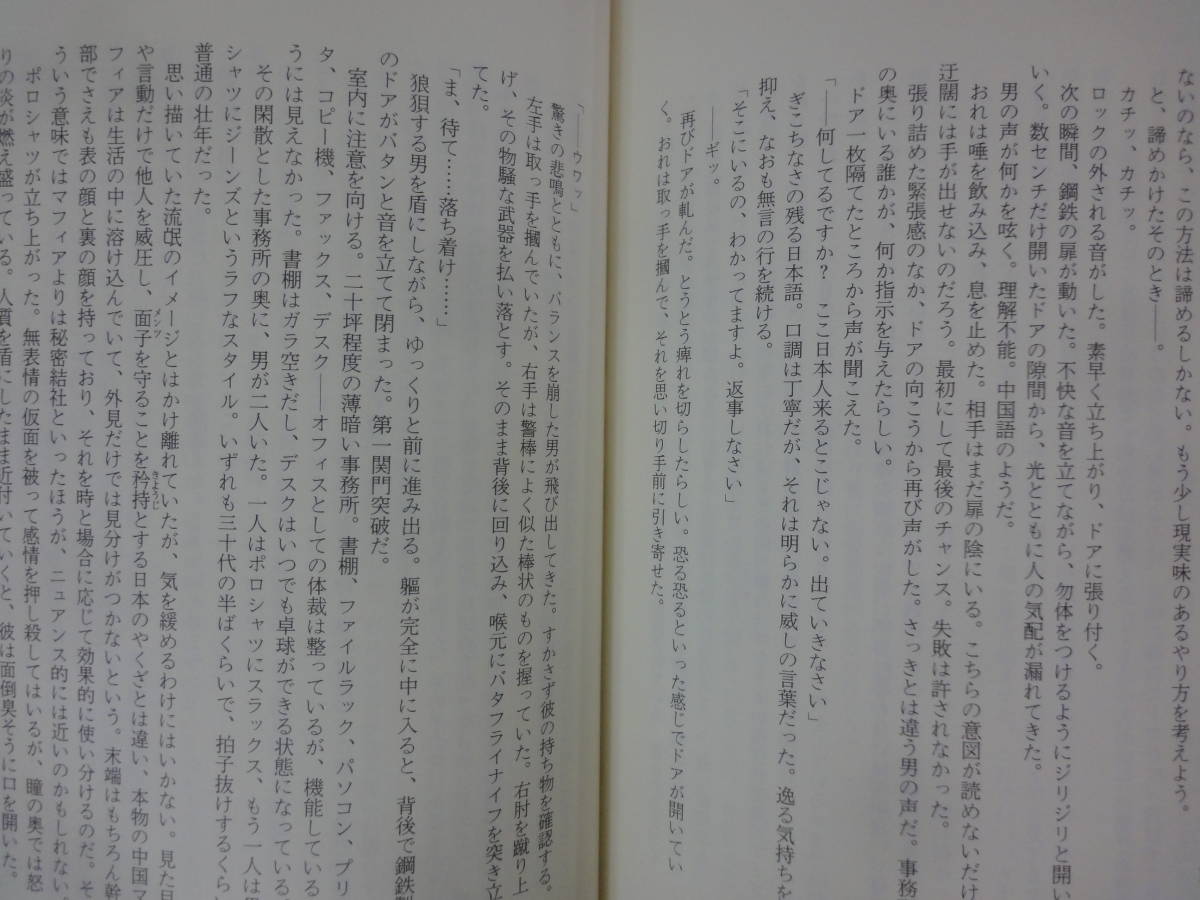 ないのなら、この方法は諦めるしかない。もう少し現実味のあるやり方を考えよう。
と、諦めかけたそのとき――。
カチッ、カチッ。
ロックの外される音がした。素早く立ち上がり、ドアに張り付く。
次の瞬間、鋼鉄の扉が動いた。不快な音を立てながら、勿体をつけるようにジリジリと開い
いく。数センチだけ開いたドアの隙間から、光とともに人の気配が漏れてきた。
男の声が何かを呟く。理解不能。中国語のようだ。
おれは唾を飲み込み、息を止めた。相手はまだ扉の陰にいる。こちらの意図が読めないだけ
迂闊には手が出せないのだろう。最初にして最後のチャンス。失敗は許されなかった。
張り詰めた緊張感のなか、ドアの向こうから再び声がした。さっきとは違う男の声だ。事務
の奥にいる誰かが、何か指示を与えたらしい。
ドア一枚隔てたところから声が聞こえた。
「――何してるですか?　ここ日本人来るとこじゃない。出ていきなさい」
ぎこちなさの残る日本語。口調は丁寧だが、それは明らかに威しの言葉だった。逸る気持ちを
抑え、なおも無言の行を続ける。
「そこにいるの、わかってますよ。返事しなさい」
――ギッ。
再びドアが軋んだ。とうとう痺れを切らしたらしい。恐る恐るといった感じでドアが開いてい
く。おれは取っ手を摑んで、それを思い切り手前に引き寄せた。
「――ウウッ」
驚きの悲鳴とともに、バランスを崩した男が飛び出してきた。すかさず彼の持ち物を確認する。
左手は取っ手を摑んでいたが、右手は警棒によく似た棒状のものを握っていた。右肘を蹴り上
げ、その物騒な武器を払い落とす。そのまま背後に回り込み、喉元にバタフライナイフを突き立
てた。
「ま、待て……落ち着け……」
狼狽する男を盾にしながら、ゆっくりと前に進み出る。軀が完全に中に入ると、背後で鋼鉄製
のドアがバタンと音を立てて閉まった。第一関門突破だ。
室内に注意を向ける。二十坪程度の薄暗い事務所。書棚、ファイルラック、パソコン、プリ
タ、コピー機、ファックス、デスク――オフィスとしての体裁は整っているが、機能している
うには見えなかった。書棚はガラ空きだし、デスクはいつでも卓球ができる状態になっている
その閑散とした事務所の奥に、男が二人いた。一人はポロシャツにスラックス、もう一人は
シャツにジーンズというラフなスタイル。いずれも三十代の半ばくらいで、拍子抜けするくら
普通の壮年だった。
思い描いていた流氓のイメージとはかけ離れていたが、気を緩めるわけにはいかない。見た目
や言動だけで他人を威圧し、面子を守ることを矜持とする日本のやくざとは違い、本物の中国マ
フィアは生活の中に溶け込んでいて、外見だけでは見分けがつかないという。末端はもちろん幹
部でさえも表の顔と裏の顔を持っており、それを時と場合に応じて効果的に使い分けるのだ。そ
ういう意味ではマフィアよりは秘密結社といったほうが、ニュアンス的には近いのかもしれない
ポロシャツが立ち上がった。無表情の仮面を被って感情を押し殺してはいるが、瞳の奥では怒
りの炎が燃え盛っている。人質を盾にしたまま近付いていくと、彼は面倒臭そうに口を開いた。